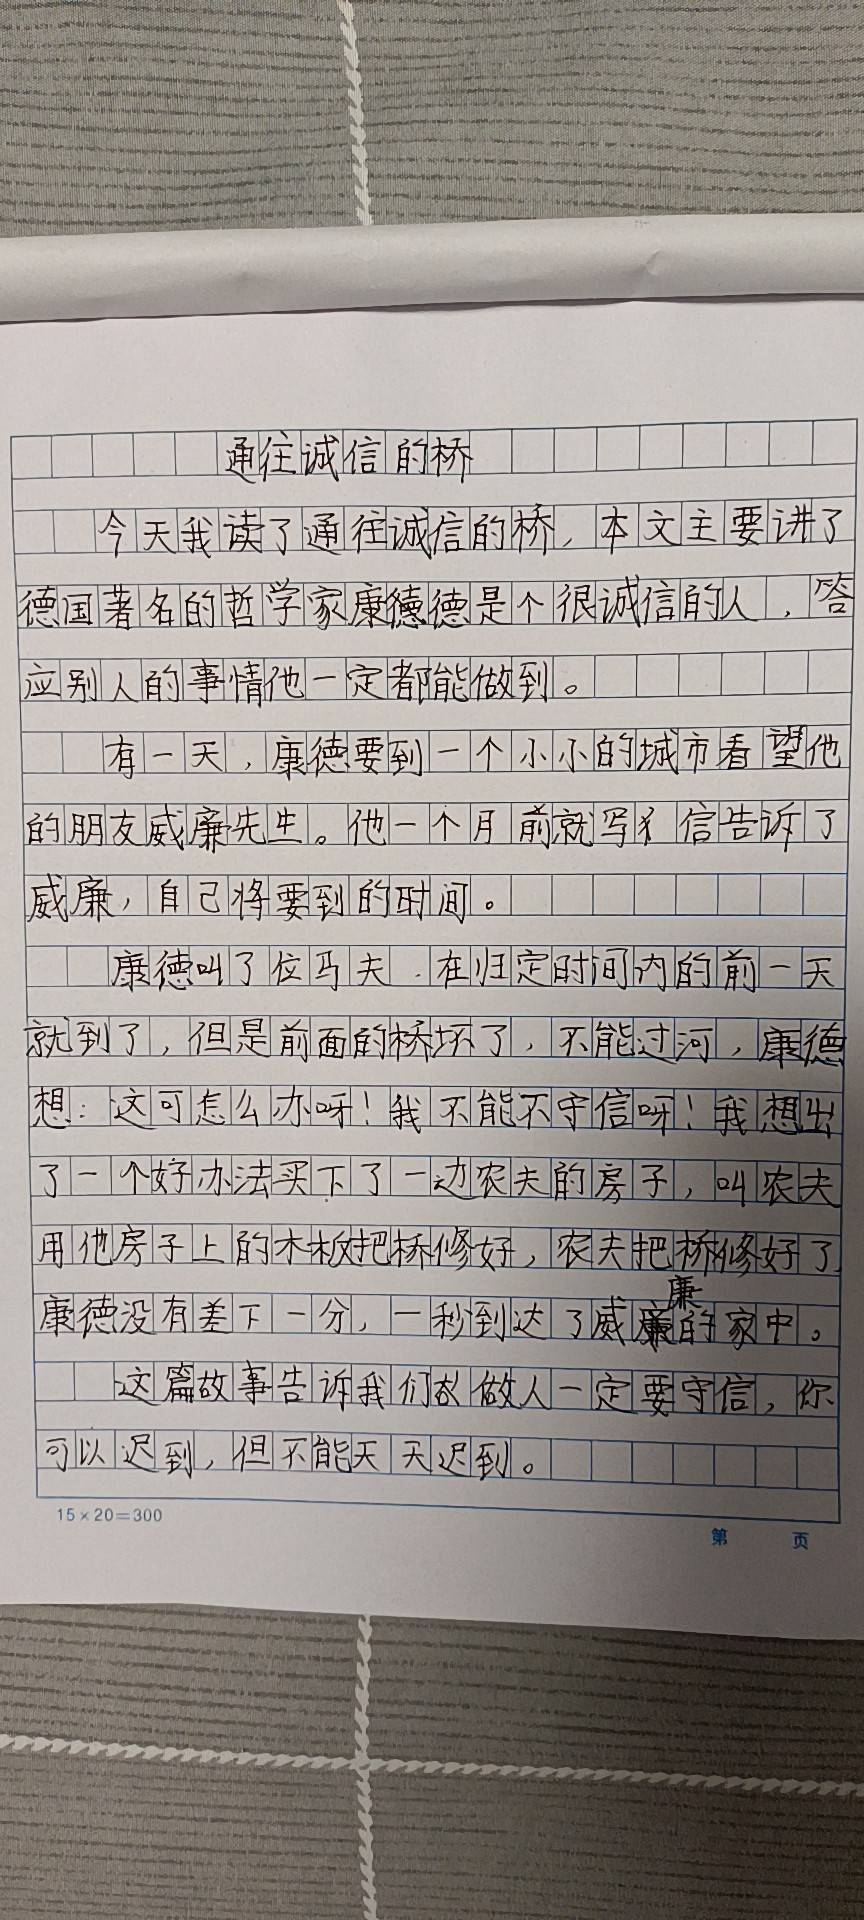 通往诚信的桥
今天我读了通往诚信的桥，本文主要讲了
德国著名的哲学家康德德是个很诚信的人，答
应别人的事情他一定都能做到。
有一天，康德要到一个小小的城市看望他
的朋友威廉先生。他一个月前就写 信告诉了
威廉，自己将要到的时间。
康德叫了位马夫．在归定时间内的前一天
就到了，但是前面的桥坏了，不能过河，康德
想：这可怎么办呀！我不能不守信呀！我想出
了一个好办法买下了一边农夫的房子，叫农夫
用他房子上的木板把桥修好，农夫把桥修好了
康德没有差下一分，一秒到达了威廉的家中。
这篇故事告诉我们 做人一定要守信，你
可以迟到，但不能天天迟到。
15×20=300
第 页